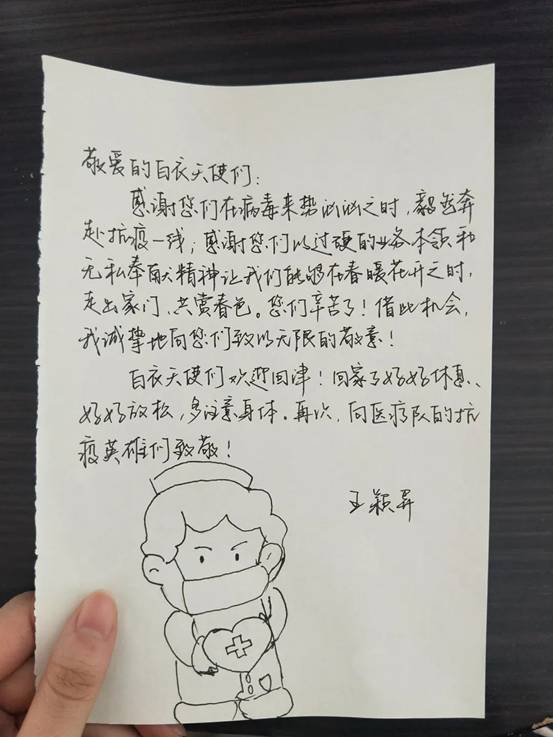 敬爱的白衣天使们：
感谢您们在病毒来势汹汹之时，毅然奔
赴抗疫一线；感谢您们以过硬的业务本领和
无私奉献精神让我们能够在春暖花开之时，
走出家门、共赏春色。您们辛苦了！借此机会，
我诚挚地向您们致以无限的敬意！
白衣天使们欢迎回津！回家了好好休息、
好好放松，多注意身体。再次，向医疗队的抗
疫英雄们致敬！
王颖昇